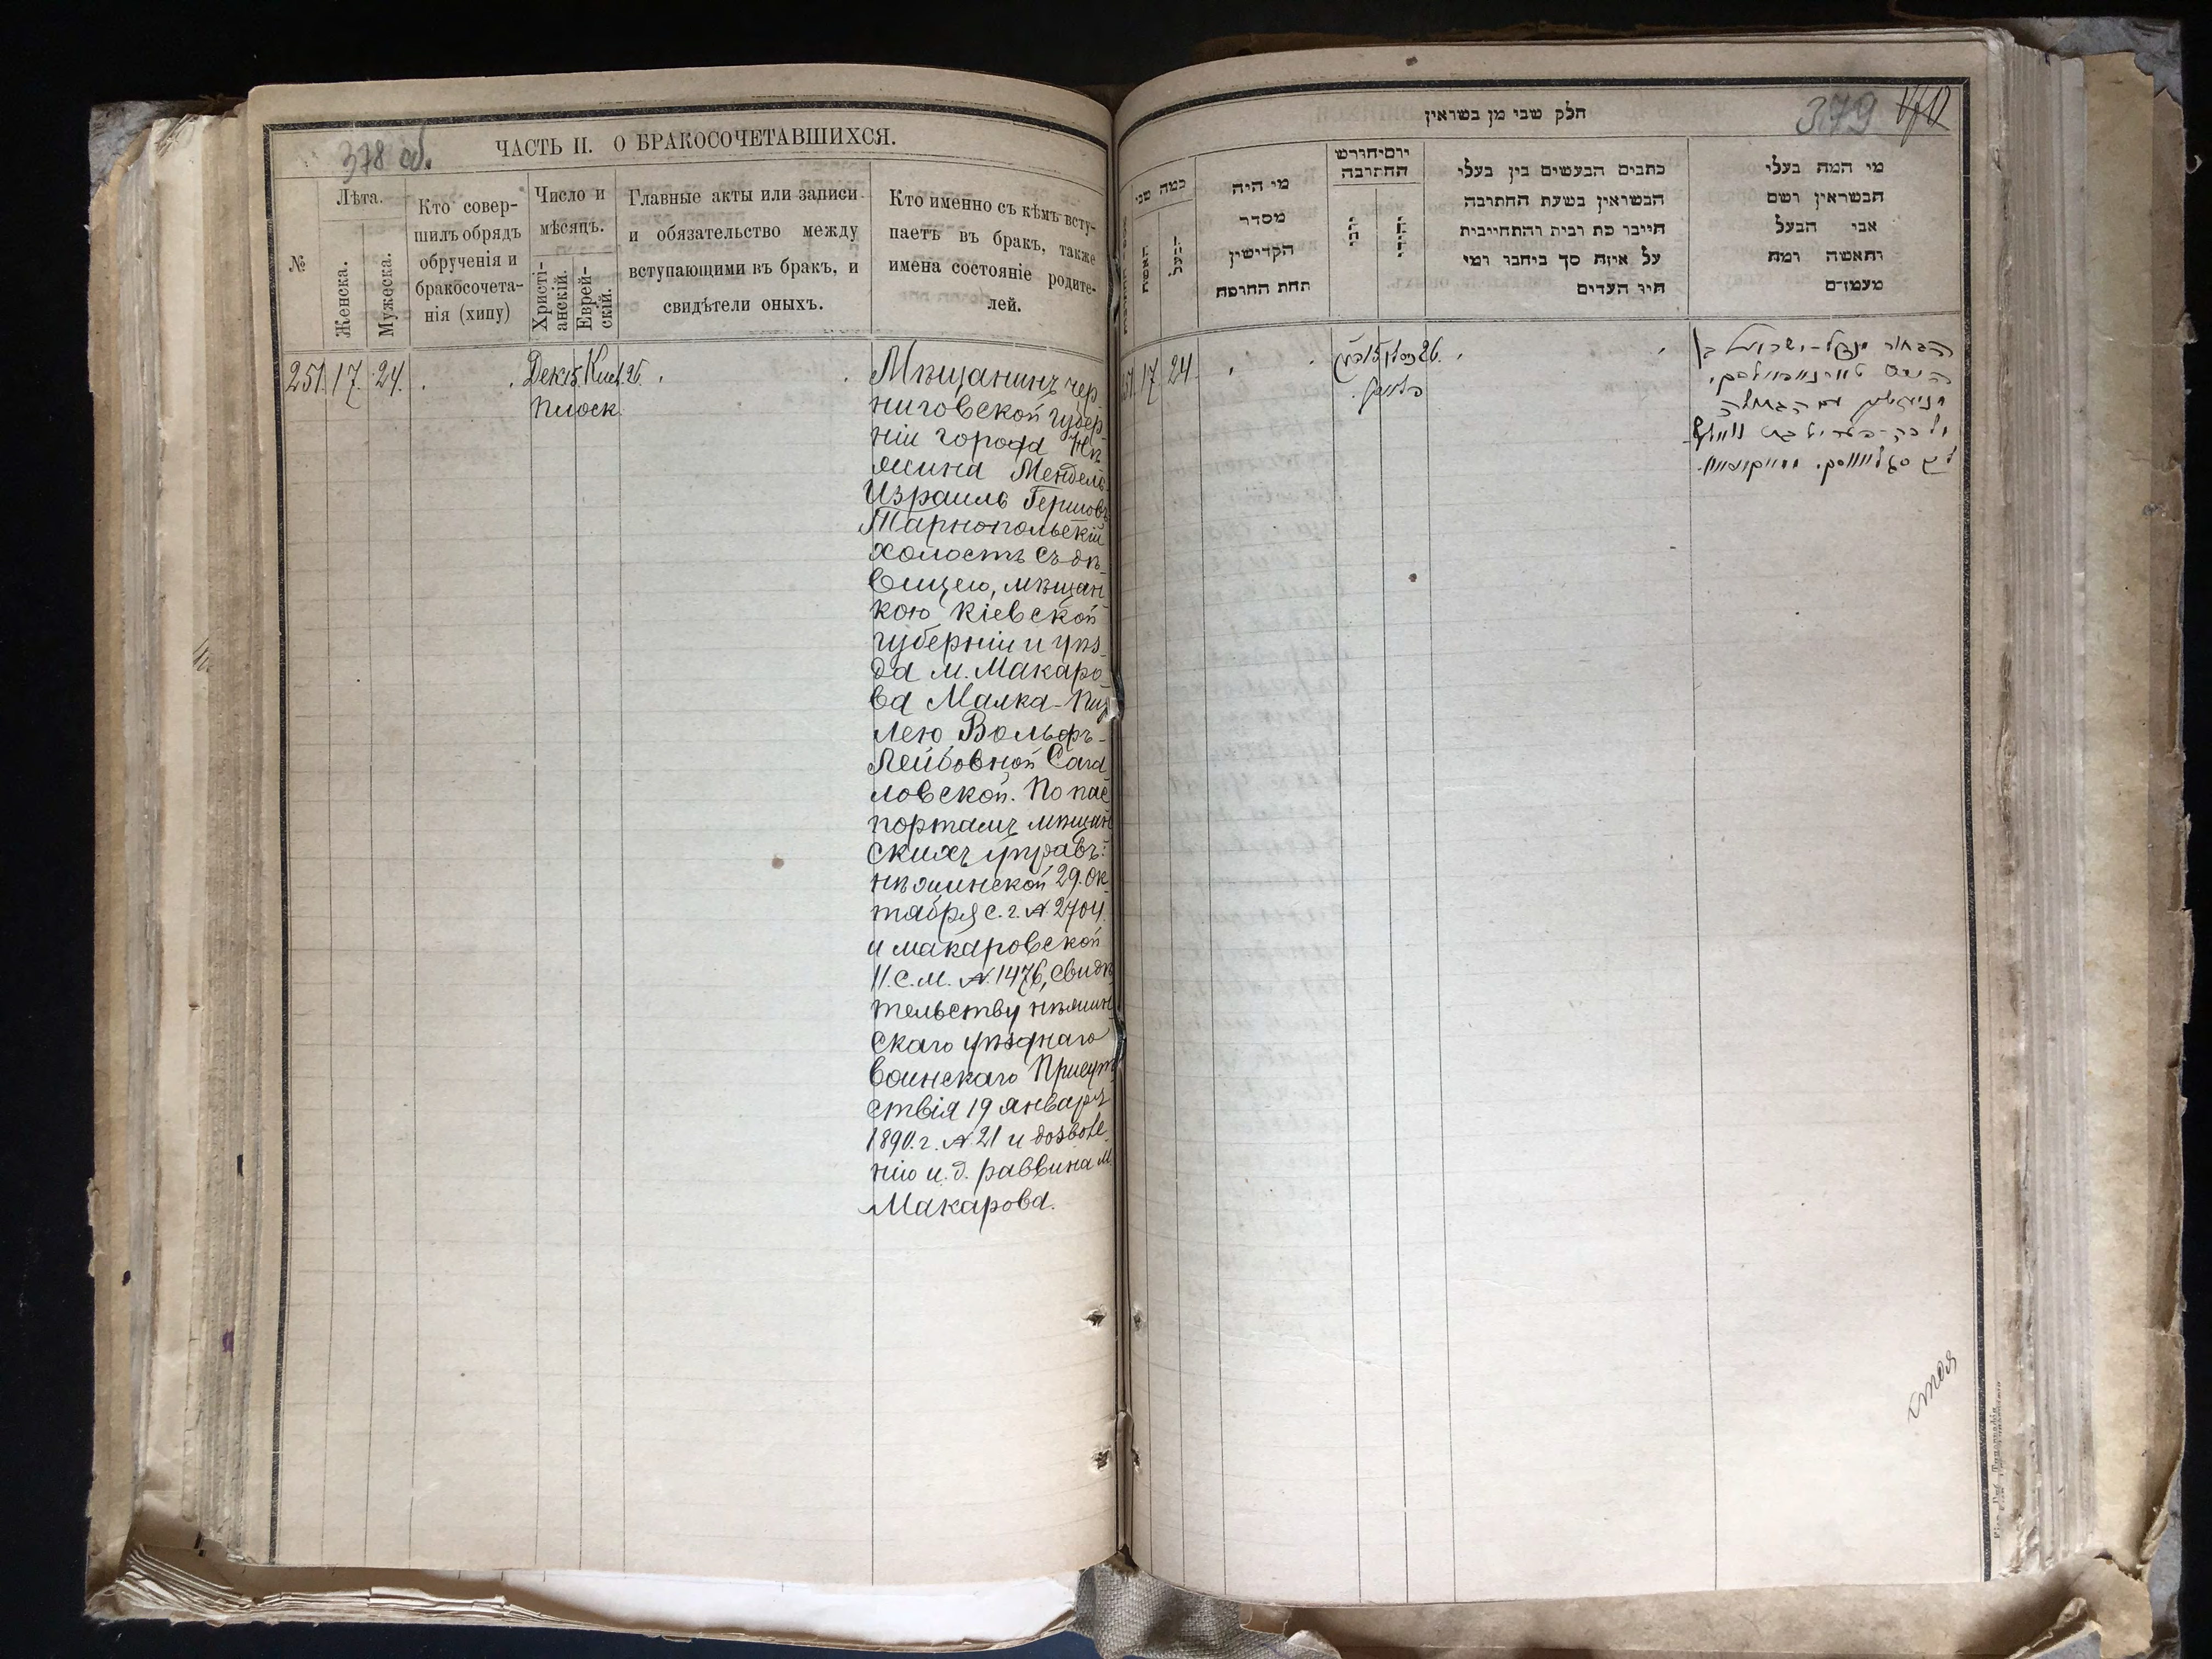 378 об.
ЧАСТЬ II. О БРАКОСОЧЕТАВШИХСЯ.
№
Лѣта.
Женска.
Мужеска.
Кто совер-
шилъ обрядъ
обрученія и
бракосочета-
нія (хипу)
Число и
мѣсяцъ.
Христі-
анскій.
Еврей-
скій.
Главные акты или записи
и обязательство между
вступающими въ бракъ, и
свидѣтели оныхъ.
Кто именно съ кѣмъ всту-
паетъ въ бракъ, также
имена состояніе родите-
лей.
251. 17. 24. Дек. 15. Кисл. 26.
Плоск.
Мѣщанинъ чер
ниговской губер-
ніи города Нѣ
жина Мендель-
Израиль Гершовъ
Тарнопольскій
холостъ съ дѣ-
вицею, мѣщан
кою Кіевской
губерніи и уѣз-
да м. Макаро-
ва Малка-Пиз
лею Вольфъ-
Лейбовной Сага
ловской. По пас
портамъ мѣщан
скихъ управъ:
нѣжинской 29. Ок-
тября с. г. № 2704.
и макаровской
11. с. м. № 1476, свидѣ
тельству нѣжин
скаго уѣзднаго
воинскаго Присут
ствія 19 января
1890. г. № 21 и дозволе
нію и. д. раввина м.
Макарова.
379
חלק שני מן בשואין
כמה שני
האשה
הבעל
מי היה
מסדר
הקדישין
תחת החופה
יום וחודש
החתונה
כתבים הנעשים בין בעלי
הנשואין בשעת החתונה
חייבר כת רבית והתחייבית
על איזה סך ביחבר ומי
היו העדים
מי המה בעלי
הנשואין ושם
אבי הבעל
והאשה ומה
מעמדם
251. 17. 24. 15 26.
הבחור מנדל-ישראל בן